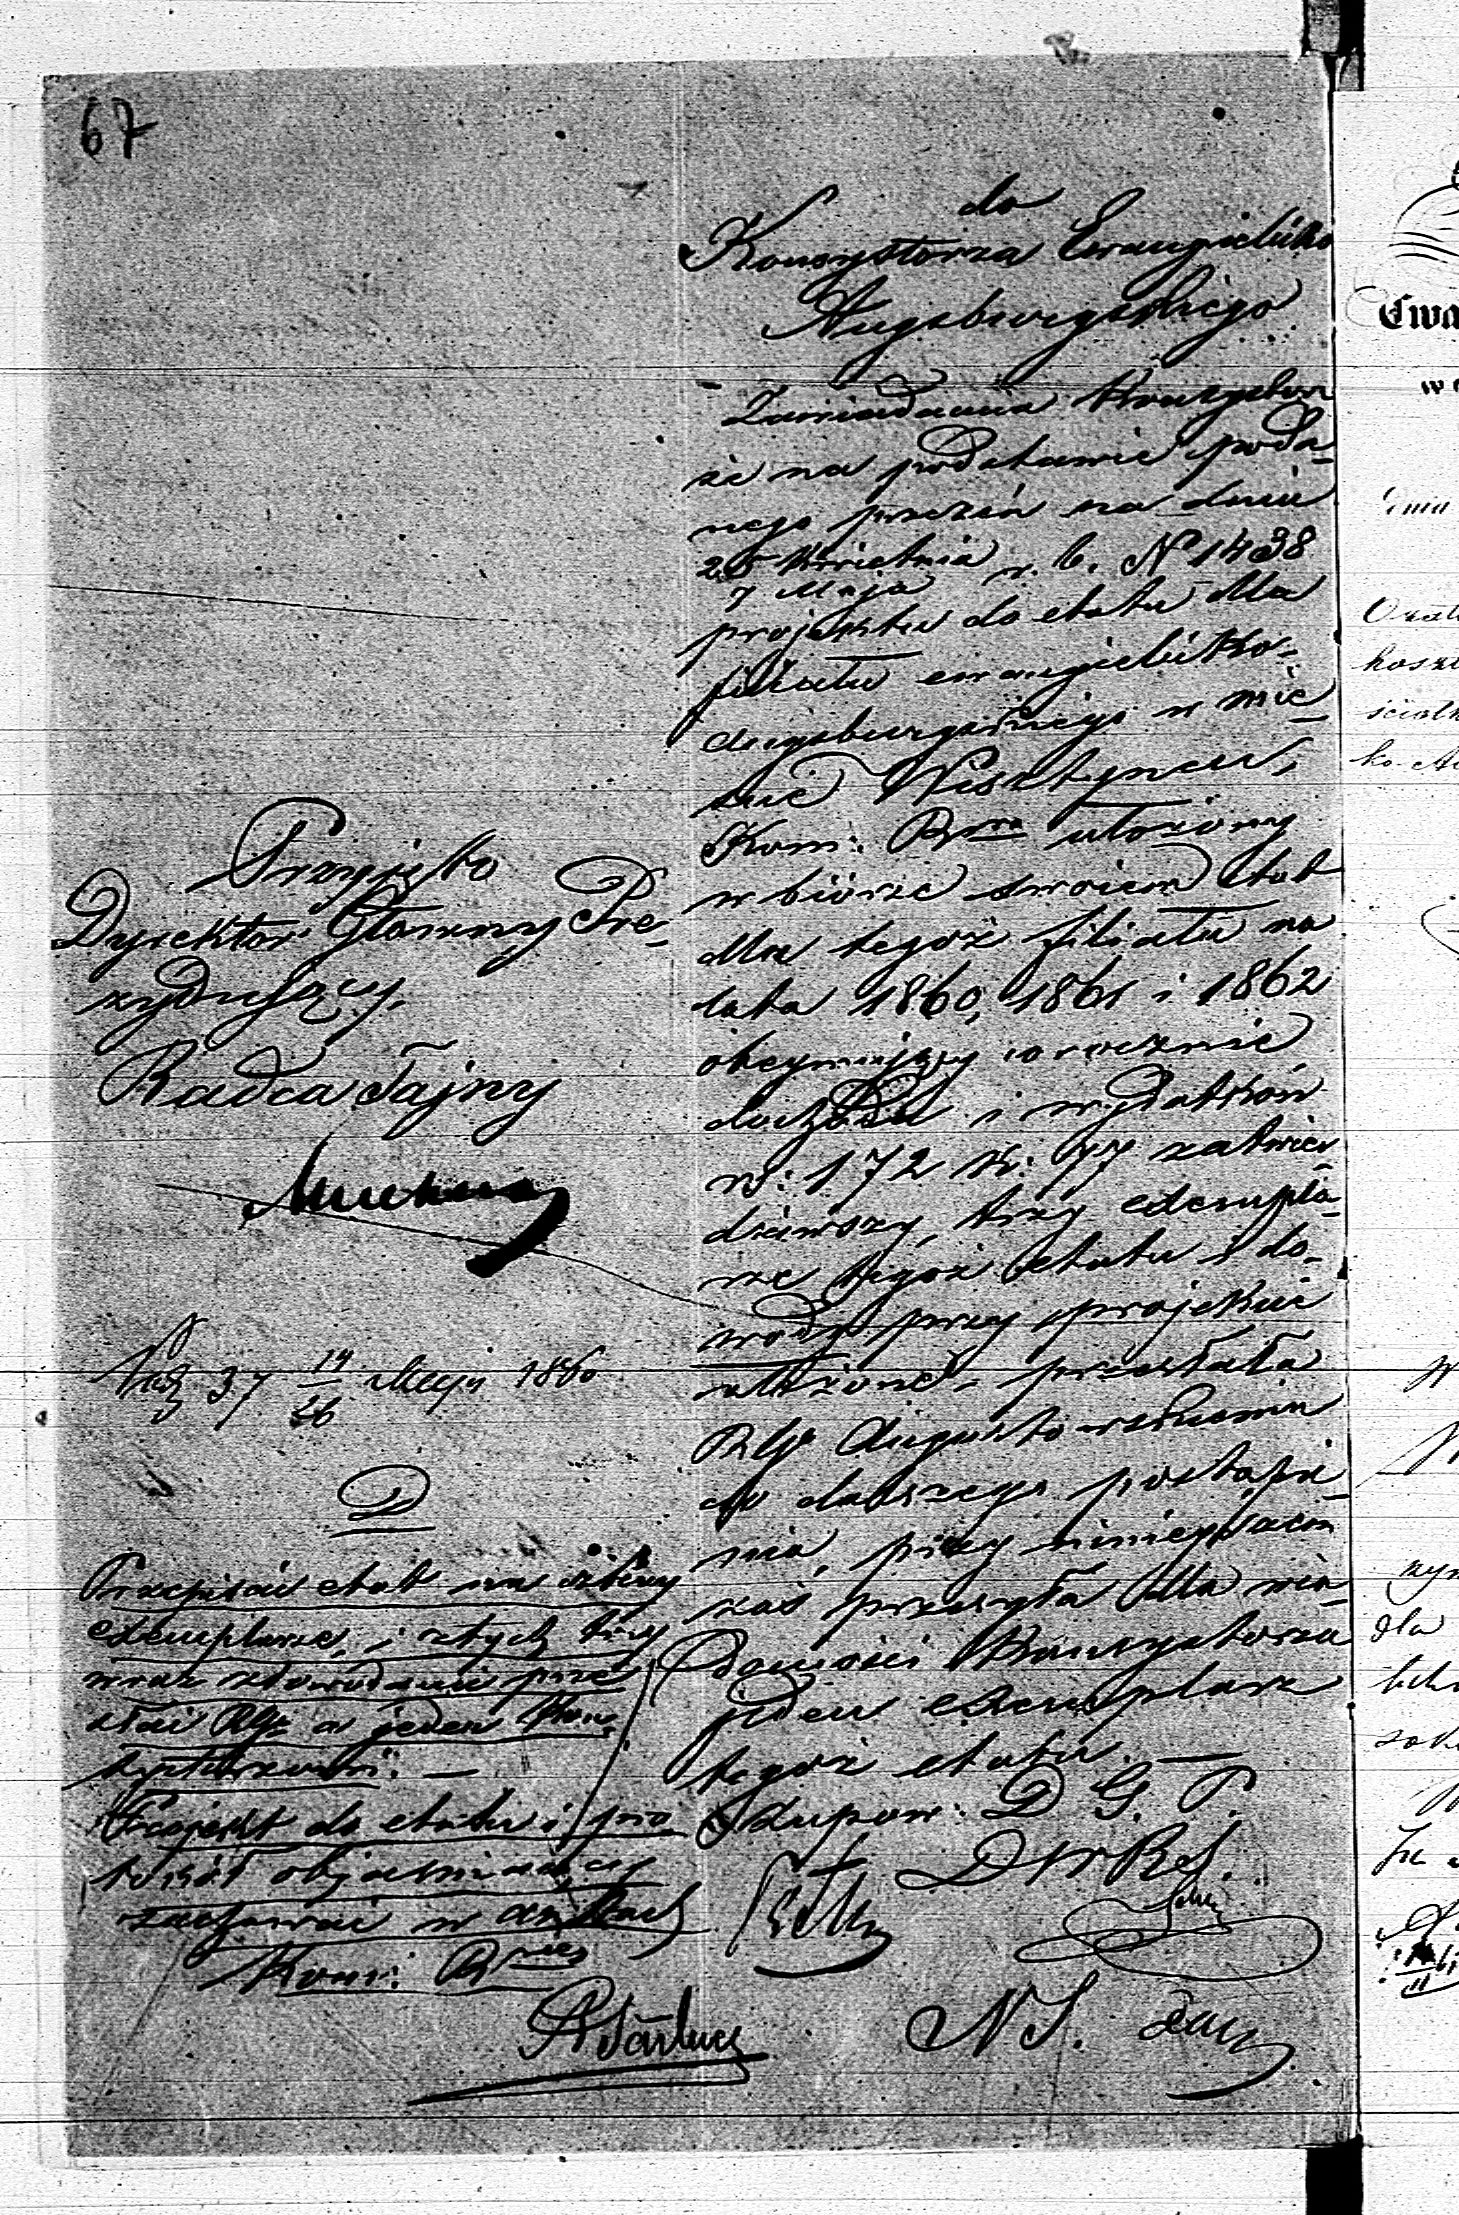 67
do
Konsystorza Ewangielicko
Augsburgskiego
Zawiadamia Konsystorz
że na podstawie poda-
nego przezeń na dniu
25 Kwietnia
7 Maja r. b. Nº 1438
projektu do etatu dla
filiału ewangielicko-
augsburgskiego w mie-
ście Wisztyncu,
Kom: Rzwa ułożony
w biórze swoiem etat
dla tegoż filiału na
lata 1860, 1861 i 1862
obejmujący corocznie
dochodu i wydatków
rs: 172 k: 77 zatwier-
dziwszy, trzy exempla-
rze tegoż etatu i do-
wody przy projekcie
złożone przesłała
RGo Augustowskiemu
do dalszego postąpie-
nia, przy niniejszem
zaś przesyła dla wia-
domości Konsystorza
jeden exemplarz
tegoż etatu. —
Z upow: D. G. P.
D W Rel.
N S.
Przyjęto
Dyrektor Główny Pre-
zydujący,
Radca Tajny
37 14/26 Maja 1860
D
Przepisać etat na cztery
exemplarze, i z tych trzy
wraz z dowodami prze-
słać RGu a jeden Kons
systorzowi. —
Projekt do etatu i pro
tokół objaśniający
zachować w aktach
Kom: Rwej